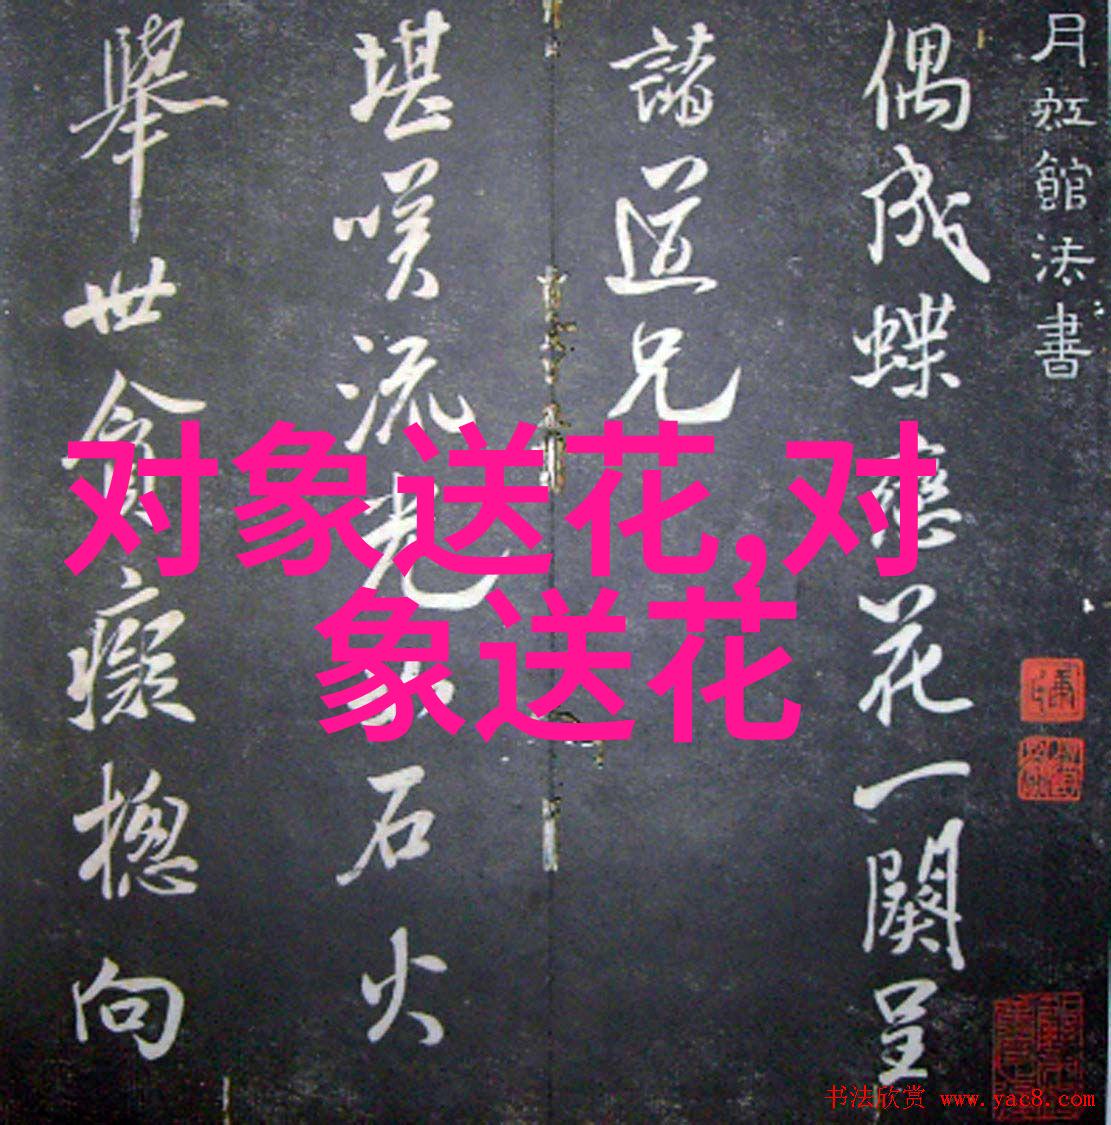 月虹館法書
偶成蝶戀花一闋呈
諸道兄
堪嘆流光石火
舉世貪癡摠向
对象送花,对
象送花
书法欣赏 www.yac8.com